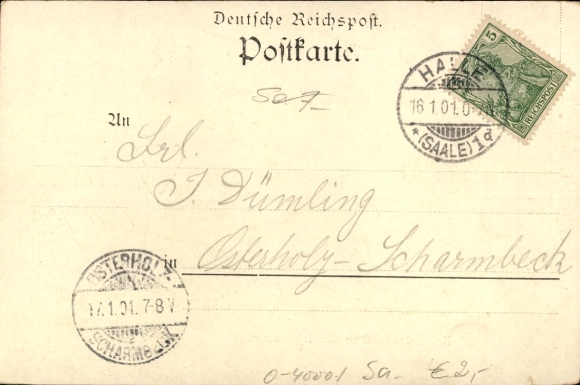 Deutsche Reichspost.
Postkarte.
5
REICHSPOST
HALLE
16 1.01.
*(SAALE)1d
An
Frl.
J. Dümling
in Osterholz-Scharmbeck
OSTERHOLZ-
17.1.01.7-8V
SCHARMBECK
0-40001 Sa- € 2,-